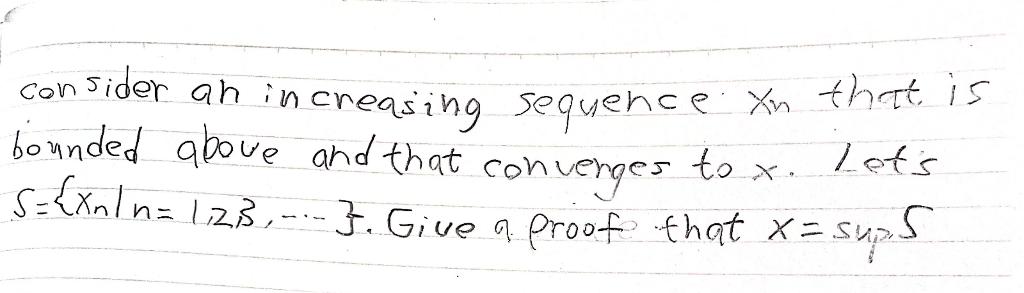 consider an increasing sequence xn that is
bounded above and that converges to x. Let's
S={xn|n=1,2,3,...}. Give a proof that x=sup S